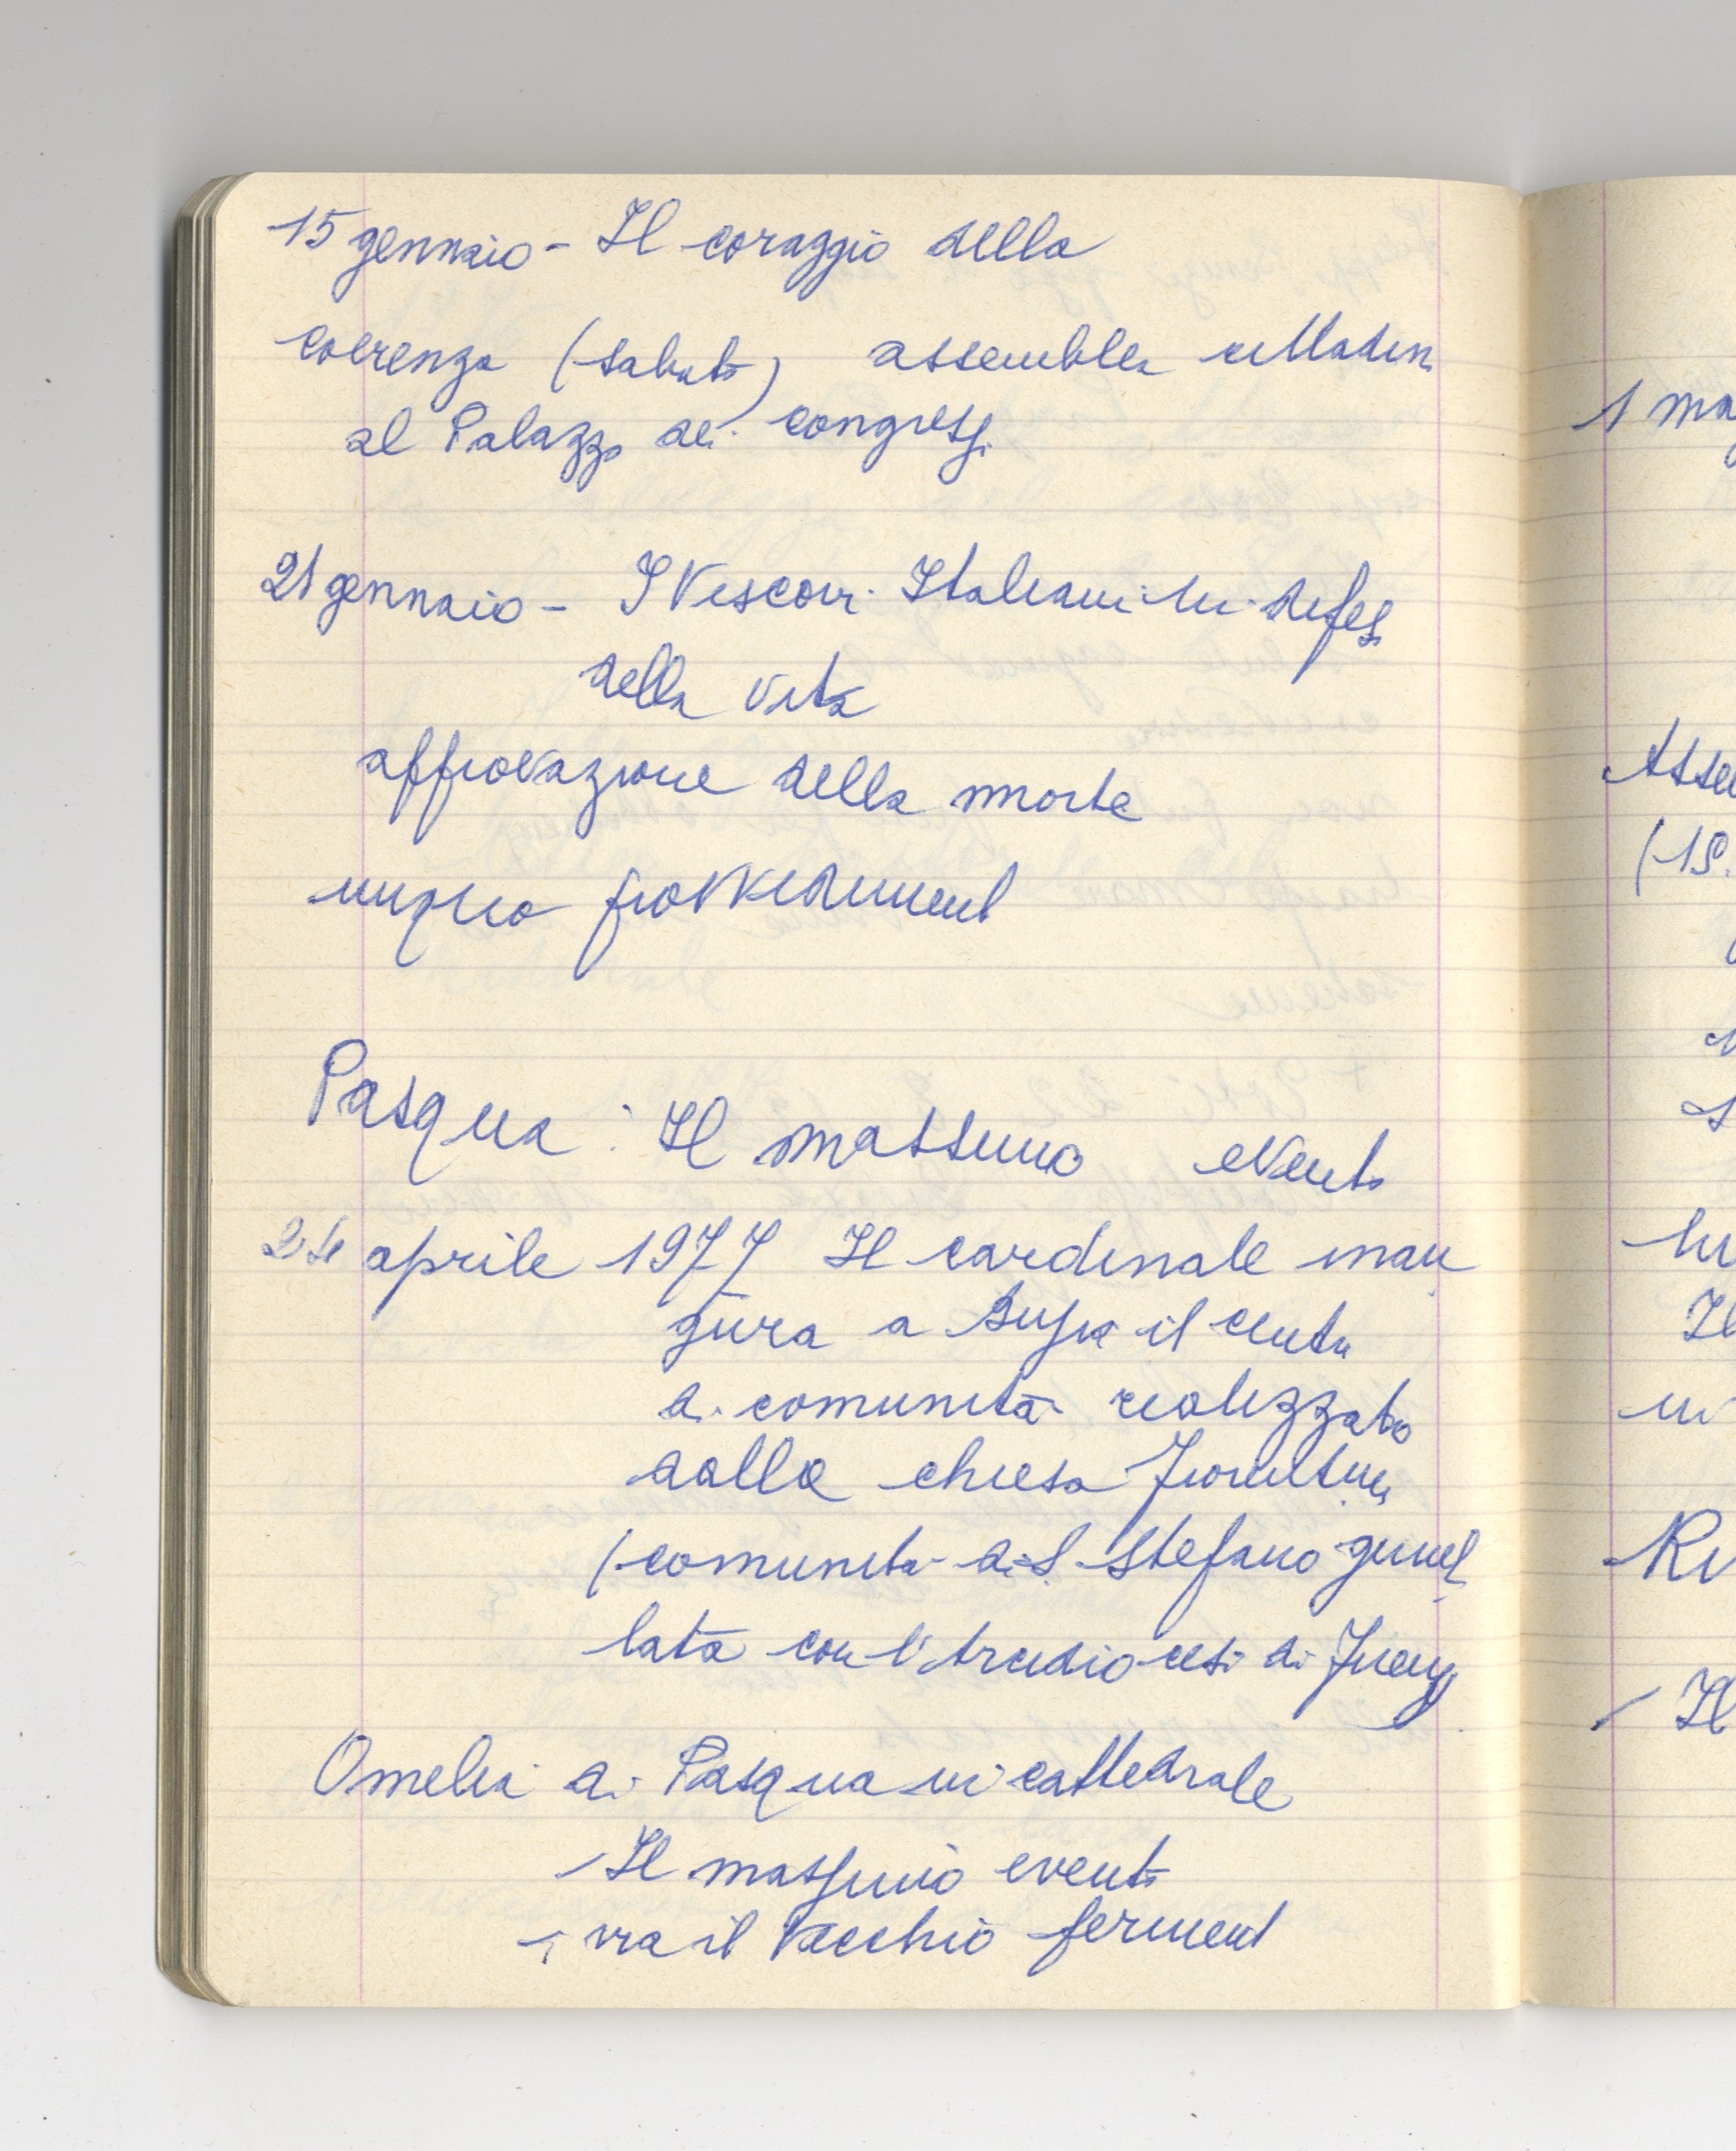 15 gennaio - Il coraggio della
coerenza (sabato) assemblea cittadin
al Palazzo dei congressi
21 gennaio - I Vescovi Italiani in difesa
della vita
approvazione della morte
iniquo provvediment
Pasqua : Il massimo evento
24 aprile 1977 Il cardinale inau
gura a il centro
di comunità realizzato
dalla chiesa fiorentina
(comunità di S. Stefano gemel
lata con l'Arcidiocesi di Firenze
Omelia di Pasqua in cattedrale
Il massimo evento
via il vecchio ferment
1 ma
Asse
(19.
s
in
Il
in
Ri
Il